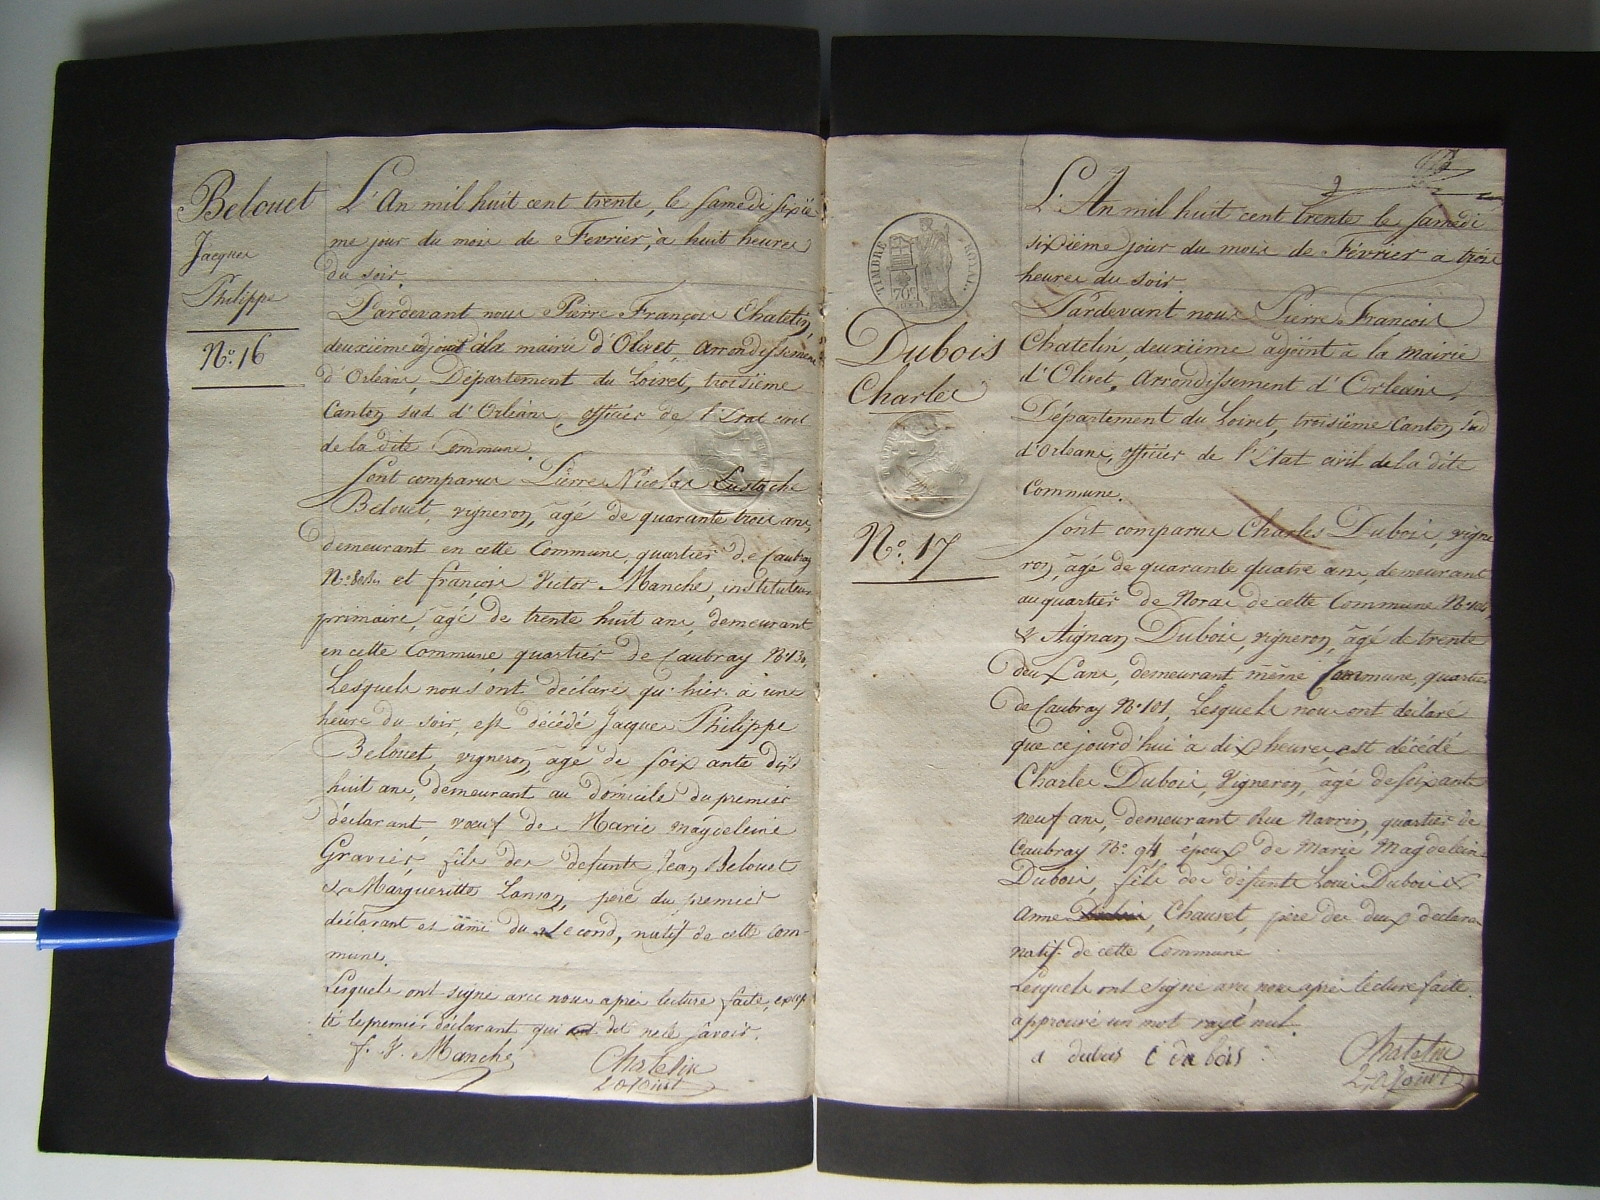 Belouet
Jacques
Philippe
N.° 16
L'An mil huit cent trente, le samedi sixiè
me jour du mois de Fevrier, à huit heures
du soir.
Pardevant nous Pierre François Chatelin,
deuxième adjoint à la mairie d'Olivet, Arrondissement
d'Orléans, Département du Loiret, troisième
Canton sud d'Orléans, officier de l'Etat civil
de la dite Commune.
Sont comparus Pierre Nicolas Eustache
Belouet, vigneron, âgé de quarante trois ans,
demeurant en cette Commune, quartier de Caubray
et françois Victor Manche, instituteur
primaire, âgé de trente huit ans, demeurant
en cette Commune, quartier de Caubray
Lesquels nous ont déclaré qu'hier à une
heure du soir, est décédé Jacques Philippe
Belouet, vigneron, âgé de soixante dix
huit ans, demeurant au domicile du premier
déclarant, vœuf de Marie magdeleine
Gravier, fils des defunts Jean Belouet
et Margueritte Lanson, père du premier
déclarant et ami du second, natif de cette Com-
mune.
Lesquels ont signé avec nous après lecture faite, excep
té le premier déclarant qui dit ne le savoir.
f. V. Manche
Chatelin
2 adjoint
TIMBRE ROYAL
70c
Dubois
Charles
N.° 17
L'An mil huit cent trente le samedi
sixième jour du mois de Février a trois
heures du soir.
Pardevant nous Pierre François
Chatelin, deuxième adjoint à la Mairie
d'Olivet, Arrondissement d'Orléans,
Département du Loiret, troisième Canton sud
d'Orleans, officier de l'Etat civil de la dite
Commune.
Sont comparus Charles Dubois, vigne
ron, âgé de quarante quatre ans, demeurant
au quartier de Norac de cette Commune
& Aignan Dubois, vigneron, âgé de trente
deux ans, demeurant même Commune, quartier
de Caubray N.° 101, Lesquels nous ont déclaré
que cejourd'hui à dix heures est décédé
Charles Dubois, Vigneron, âgé de soixante
neuf ans, demeurant Rue Navrin, quartier de
Caubray N.° 94, époux de Marie Magdeleine
Dubois, fils des défunts Louis Dubois &
Anne Chauvet, père des deux déclarans
natif de cette Commune.
Lesquels ont signé avec nous après lecture faite.
approuvé un mot rayé nul.
a dubois c du bois
Chatelin
2 adjoint